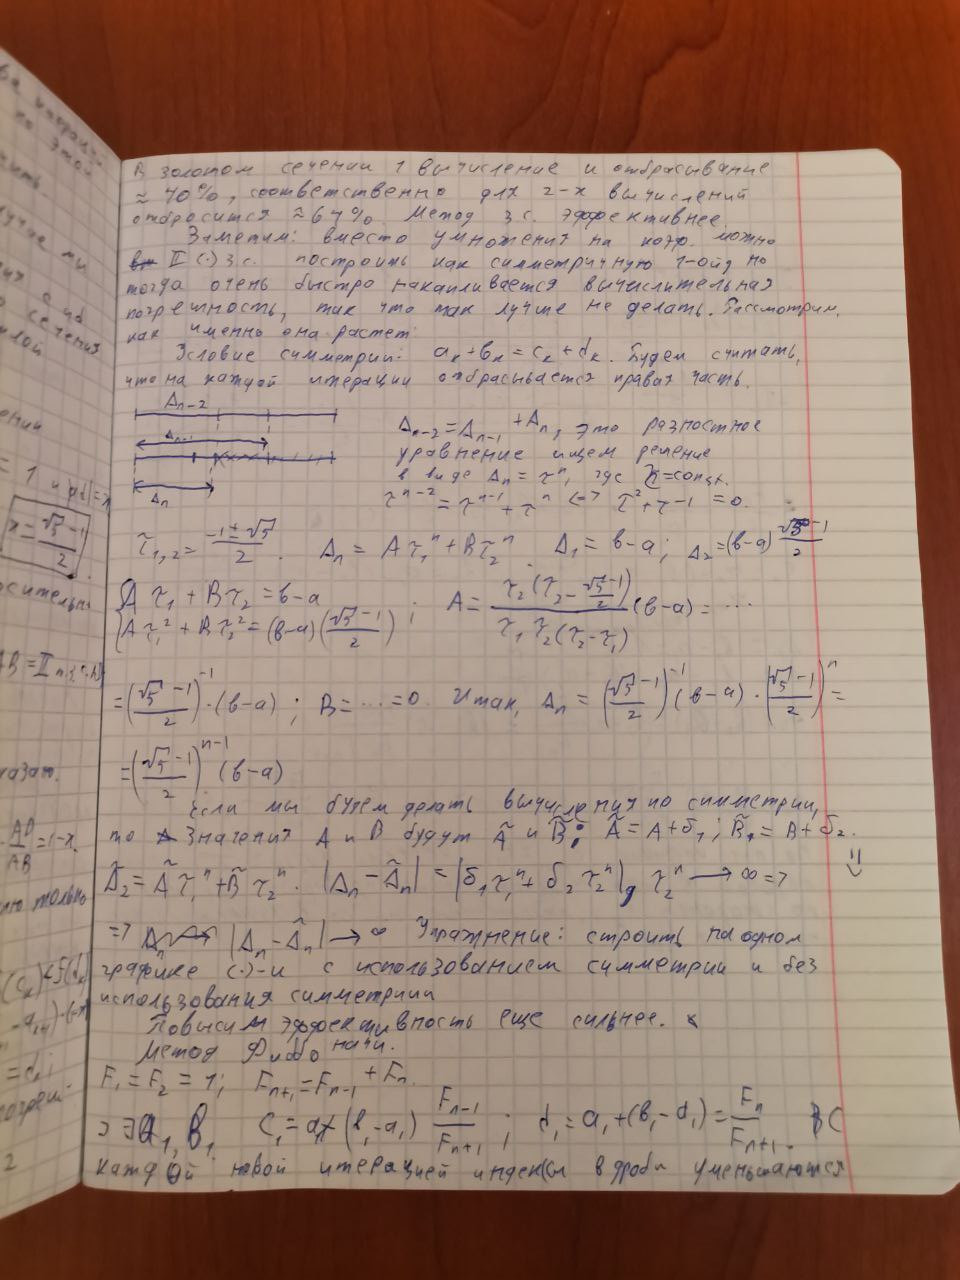 В золотом сечении 1 вычисление и отбрасывание
≈ 40%, соответственно для 2-х вычислений
отбросится ≈ 64%. Метод з.с. эффективнее
Заметим: вместо умножения на коэф. можно
II (·) з.с. построить как симметричную 1-ой, но
тогда очень быстро накапливается вычислительная
погрешность, так что так лучше не делать. Рассмотрим,
как именно она растет:
Условие симметрии: aₖ+bₖ = cₖ + dₖ. Будем считать,
что на каждой итерации отбрасывается правая часть.
Δₙ₋₂
Δₙ₋₁
Δₙ
Δₙ₋₂ = Δₙ₋₁ + Δₙ, это разностное
уравнение ищем решение
в виде Δₙ = τⁿ, где τ = const.
τⁿ⁻² = τⁿ⁻¹ + τⁿ <=> τ² + τ − 1 = 0.
τ₁,₂ = (−1 ± √5)/2. Δₙ = Aτ₁ⁿ + Bτ₂ⁿ. Δ₁ = b−a; Δ₂ = (b−a) (√5−1)/2
Aτ₁ + Bτ₂ = b−a
Aτ₁² + Bτ₂² = (b−a)((√5−1)/2) ; A = τ₂(τ₂ − (√5−1)/2) / τ₁τ₂(τ₂−τ₁) (b−a) = ...
= ((√5−1)/2)⁻¹ · (b−a) ; B = ... = 0 Итак, Δₙ = ((√5−1)/2)⁻¹ (b−a) · ((√5−1)/2)ⁿ =
= ((√5−1)/2)ⁿ⁻¹ (b−a)
Если мы будем делать вычисления по симметрии,
то значения A и B будут Ã и B̃: Ã = A + δ₁; B̃ = B + δ₂.
Δ̃₂ = Ãτ₁ⁿ + B̃τ₂ⁿ. |Δₙ − Δ̃ₙ| = |δ₁τ₁ⁿ + δ₂τ₂ⁿ|, τ₂ⁿ → ∞ =>
=> |Δₙ − Δ̃ₙ| → ∞ Упражнение: строить на одном
графике (·)-и с использованием симметрии и без
использования симметрии
Повысим эффективность еще сильнее.
Метод Фиббоначи.
F₁ = F₂ = 1; Fₙ₊₁ = Fₙ₋₁ + Fₙ.
∃ a₁, b₁. c₁ = a₁ + (b₁−a₁) Fₙ₋₁/Fₙ₊₁ ; d₁ = a₁ + (b₁−d₁) = Fₙ/Fₙ₊₁. С
каждой новой итерацией индексы в дроби уменьшаются
= 1
x = (√5−1)/2